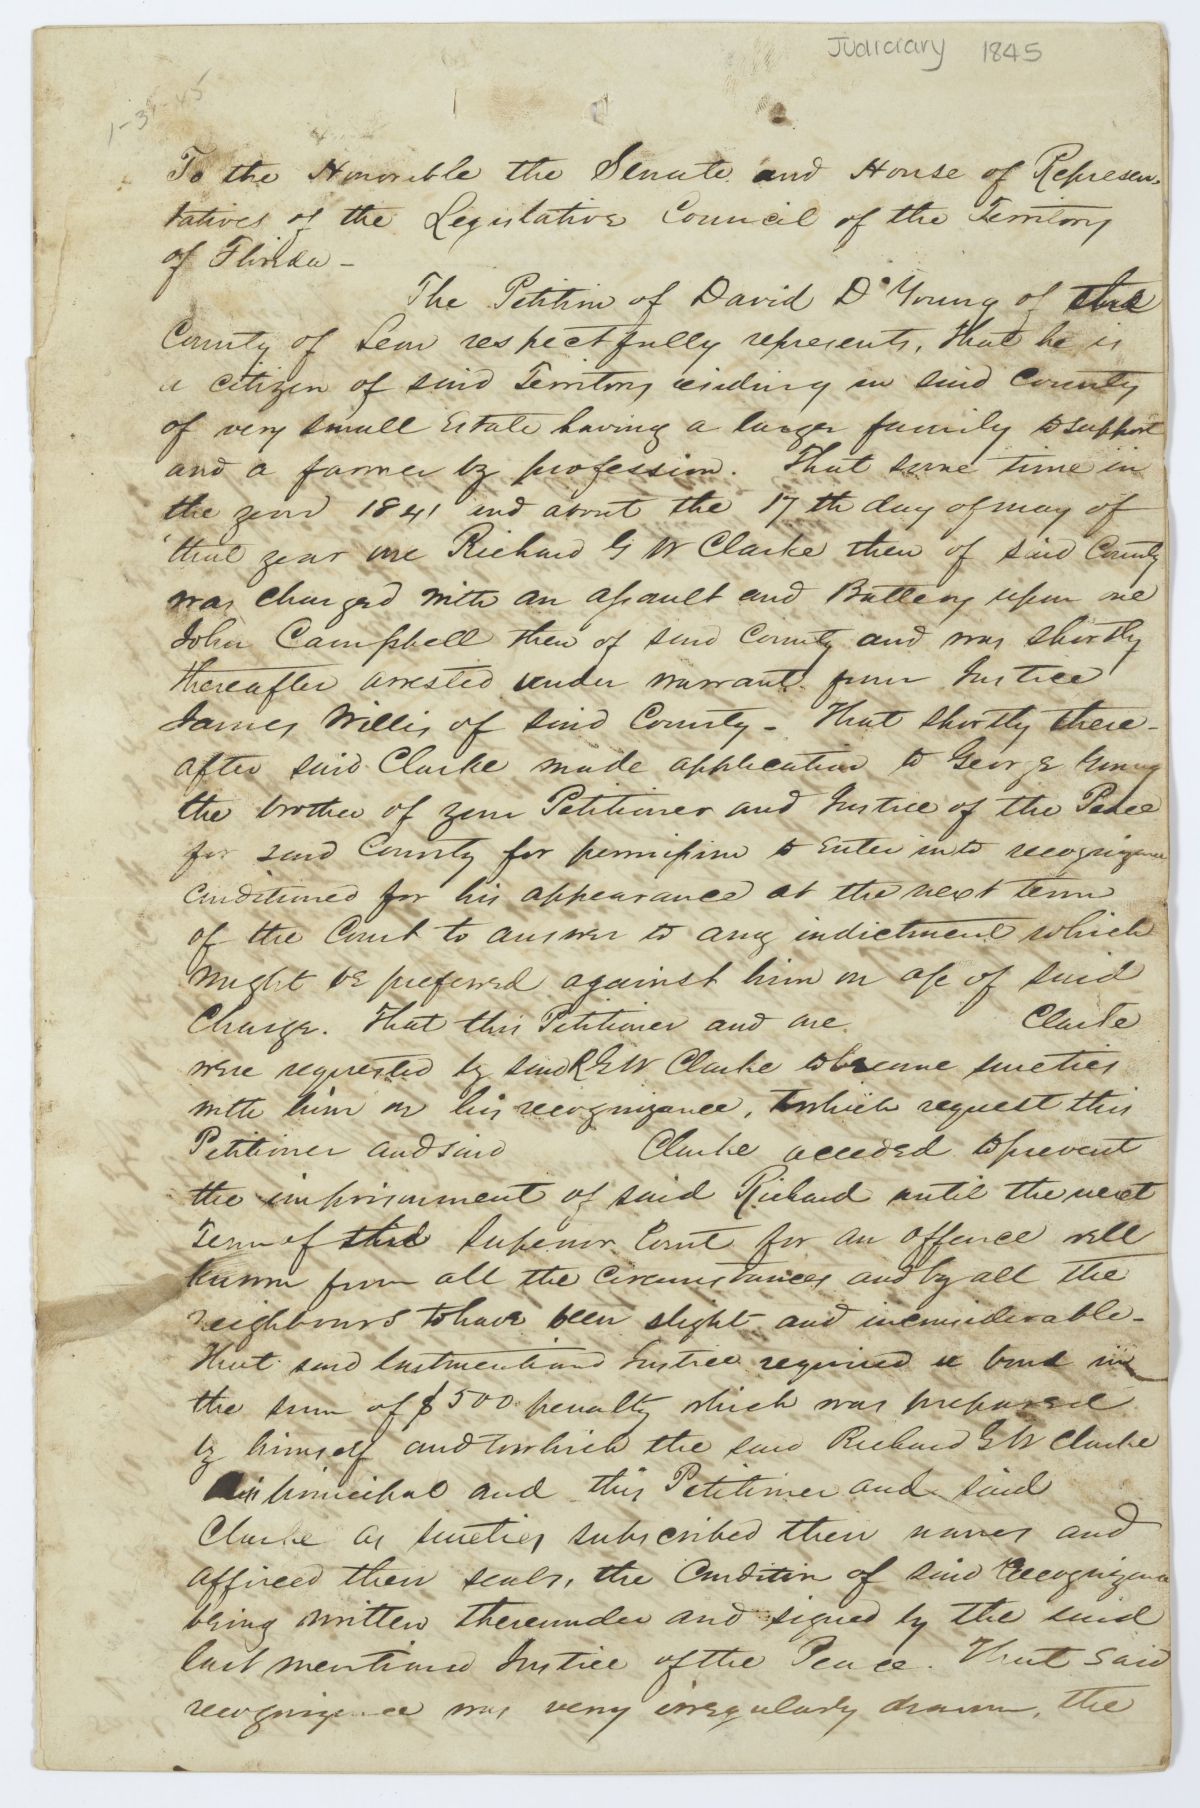 Judiciary 1845
1-31-45
To the Honorable the Senate and House of Represen-
tatives of the Legislative Council of the Territory
of Florida -
The Petition of David D Young of the
County of Leon respectfully represents, that he is
a citizen of said Territory residing in said County
of very small Estate having a large family to support
and a farmer by profession. That some time in
the year 1841 and about the 17th day of may of
that year one Richard G W Clarke then of said County
was charged with an assault and Battery upon one
John Campbell then of said County and was shortly
thereafter arrested under warrant from Justice
James Willis of said County - That shortly there-
after said Clarke made application to George Young
the brother of your Petitioner and Justice of the Peace
for said County for permission to enter into recognizance
conditioned for his appearance at the next term
of the Court to answer to any indictment which
might be preferred against him on a/c of said
Charge. That this Petitioner and one Clarke
were requested by said R G W Clarke to become sureties
with him on his recognizance, to which request this
Petitioner and said Clarke acceded to prevent
the imprisonment of said Richard until the next
Term of the Superior Court for an offence well
known from all the circumstances and by all the
neighbours to have been slight and inconsiderable -
That said last mentioned Justice required a bond in
the sum of $500 penalty which was prepared
by himself and to which the said Richard G W Clarke
as principal and this Petitioner and said
Clarke as sureties subscribed their names and
affixed their seals, the Condition of said Recognizance
being written thereunder and signed by the said
last mentioned Justice of the Peace. That said
recognizance was very irregularly drawn, the